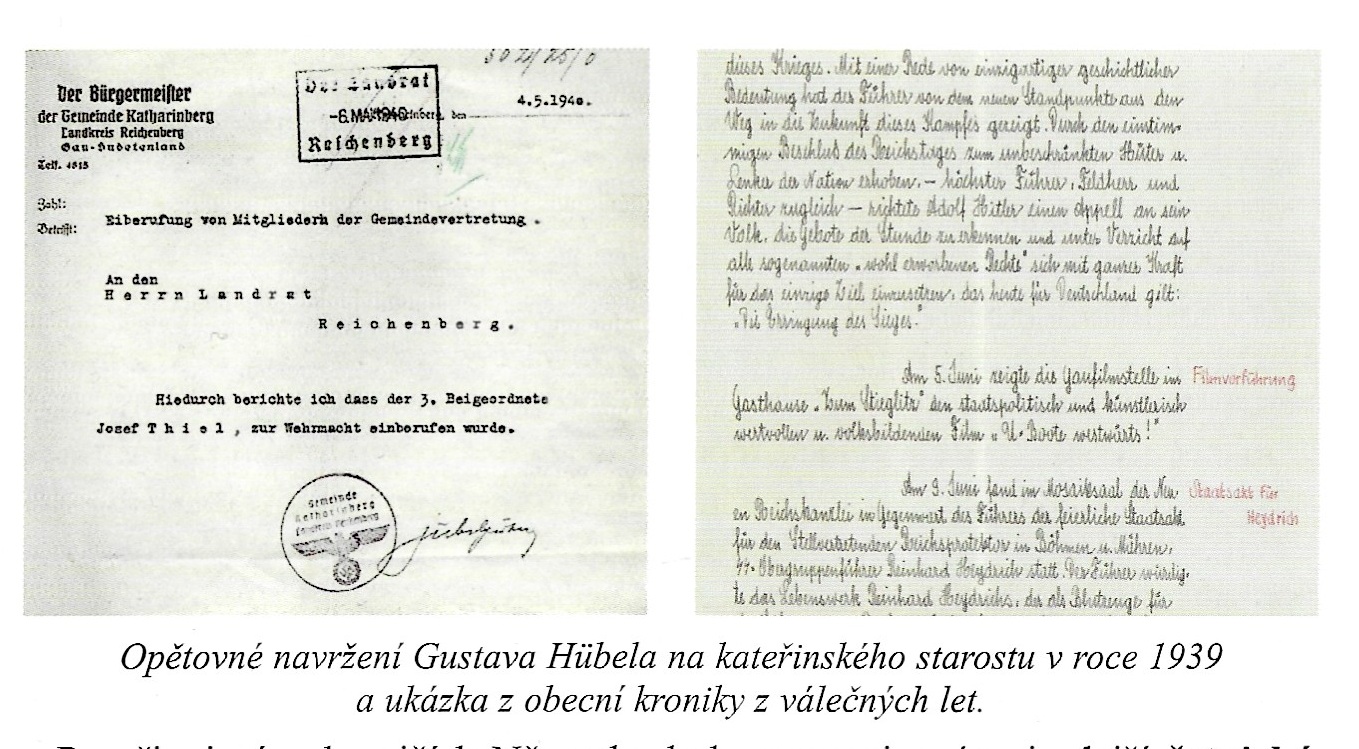 Der Bürgermeister
der Gemeinde Katharinberg
Landkreis Reichenberg
Gau-Sudetenland
Telf. 4515
Der Landrat
-6.MAI 1940
Reichenberg
den
4.5.1940.
Zahl:
Betrifft:
Eiberufung von Mitgliedern der Gemeindevertretung .
An den
Herrn Landrat
Reichenberg.
Hiedurch berichte ich dass der 3. Beigeordnete
Josef Thiel , zur Wehrmacht einberufen wurde.
Gemeinde
Katharinberg
dieses Krieges. Mit einer Rede von einzigartiger geschichtlicher
Bedeutung hat des Führer von dem neuen Standpunkte aus den
Weg in die Zukunft dieses Kampfes gezeigt. Durch den einstim-
migen Beschluß des Reichstages zum unbeschränkten Hüter u.
Lenker der Nation erhoben, – höchster Führer, Feldherr und
Richter zugleich – richtete Adolf Hitler einen Appell an sein
Volk, die Gebote der Stunde zu erkennen und unter Verzicht auf
alle sogenannten „wohl erworbenen Rechte" sich mit ganzer Kraft
für das einzige Ziel einzusetzen, das heute für Deutschland gilt:
„Die Erringung des Sieges."
Am 5. Juni zeigte die Gaufilmstelle im
Filmvorführung
Gasthause „Zum Stieglitz" den staatspolitisch und künstlerisch
wertvollen u. volksbildenden Film „U-Boote westwärts!"
Am 9. Juni fand im Mosaiksaal der Neu
Staatsakt für
Heydrich
en Reichskanzlei in Gegenwart des Führers der feierliche Staatsakt
für den Stellvertretenden Reichsprotektor in Böhmen u. Mähren,
SS-Obergruppenführer Reinhard Heydrich statt. Der Führer würdig-
te das Lebenswerk Reinhard Heydrichs, der als Blutzeuge für
Opětovné navržení Gustava Hübela na kateřinského starostu v roce 1939
a ukázka z obecní kroniky z válečných let.